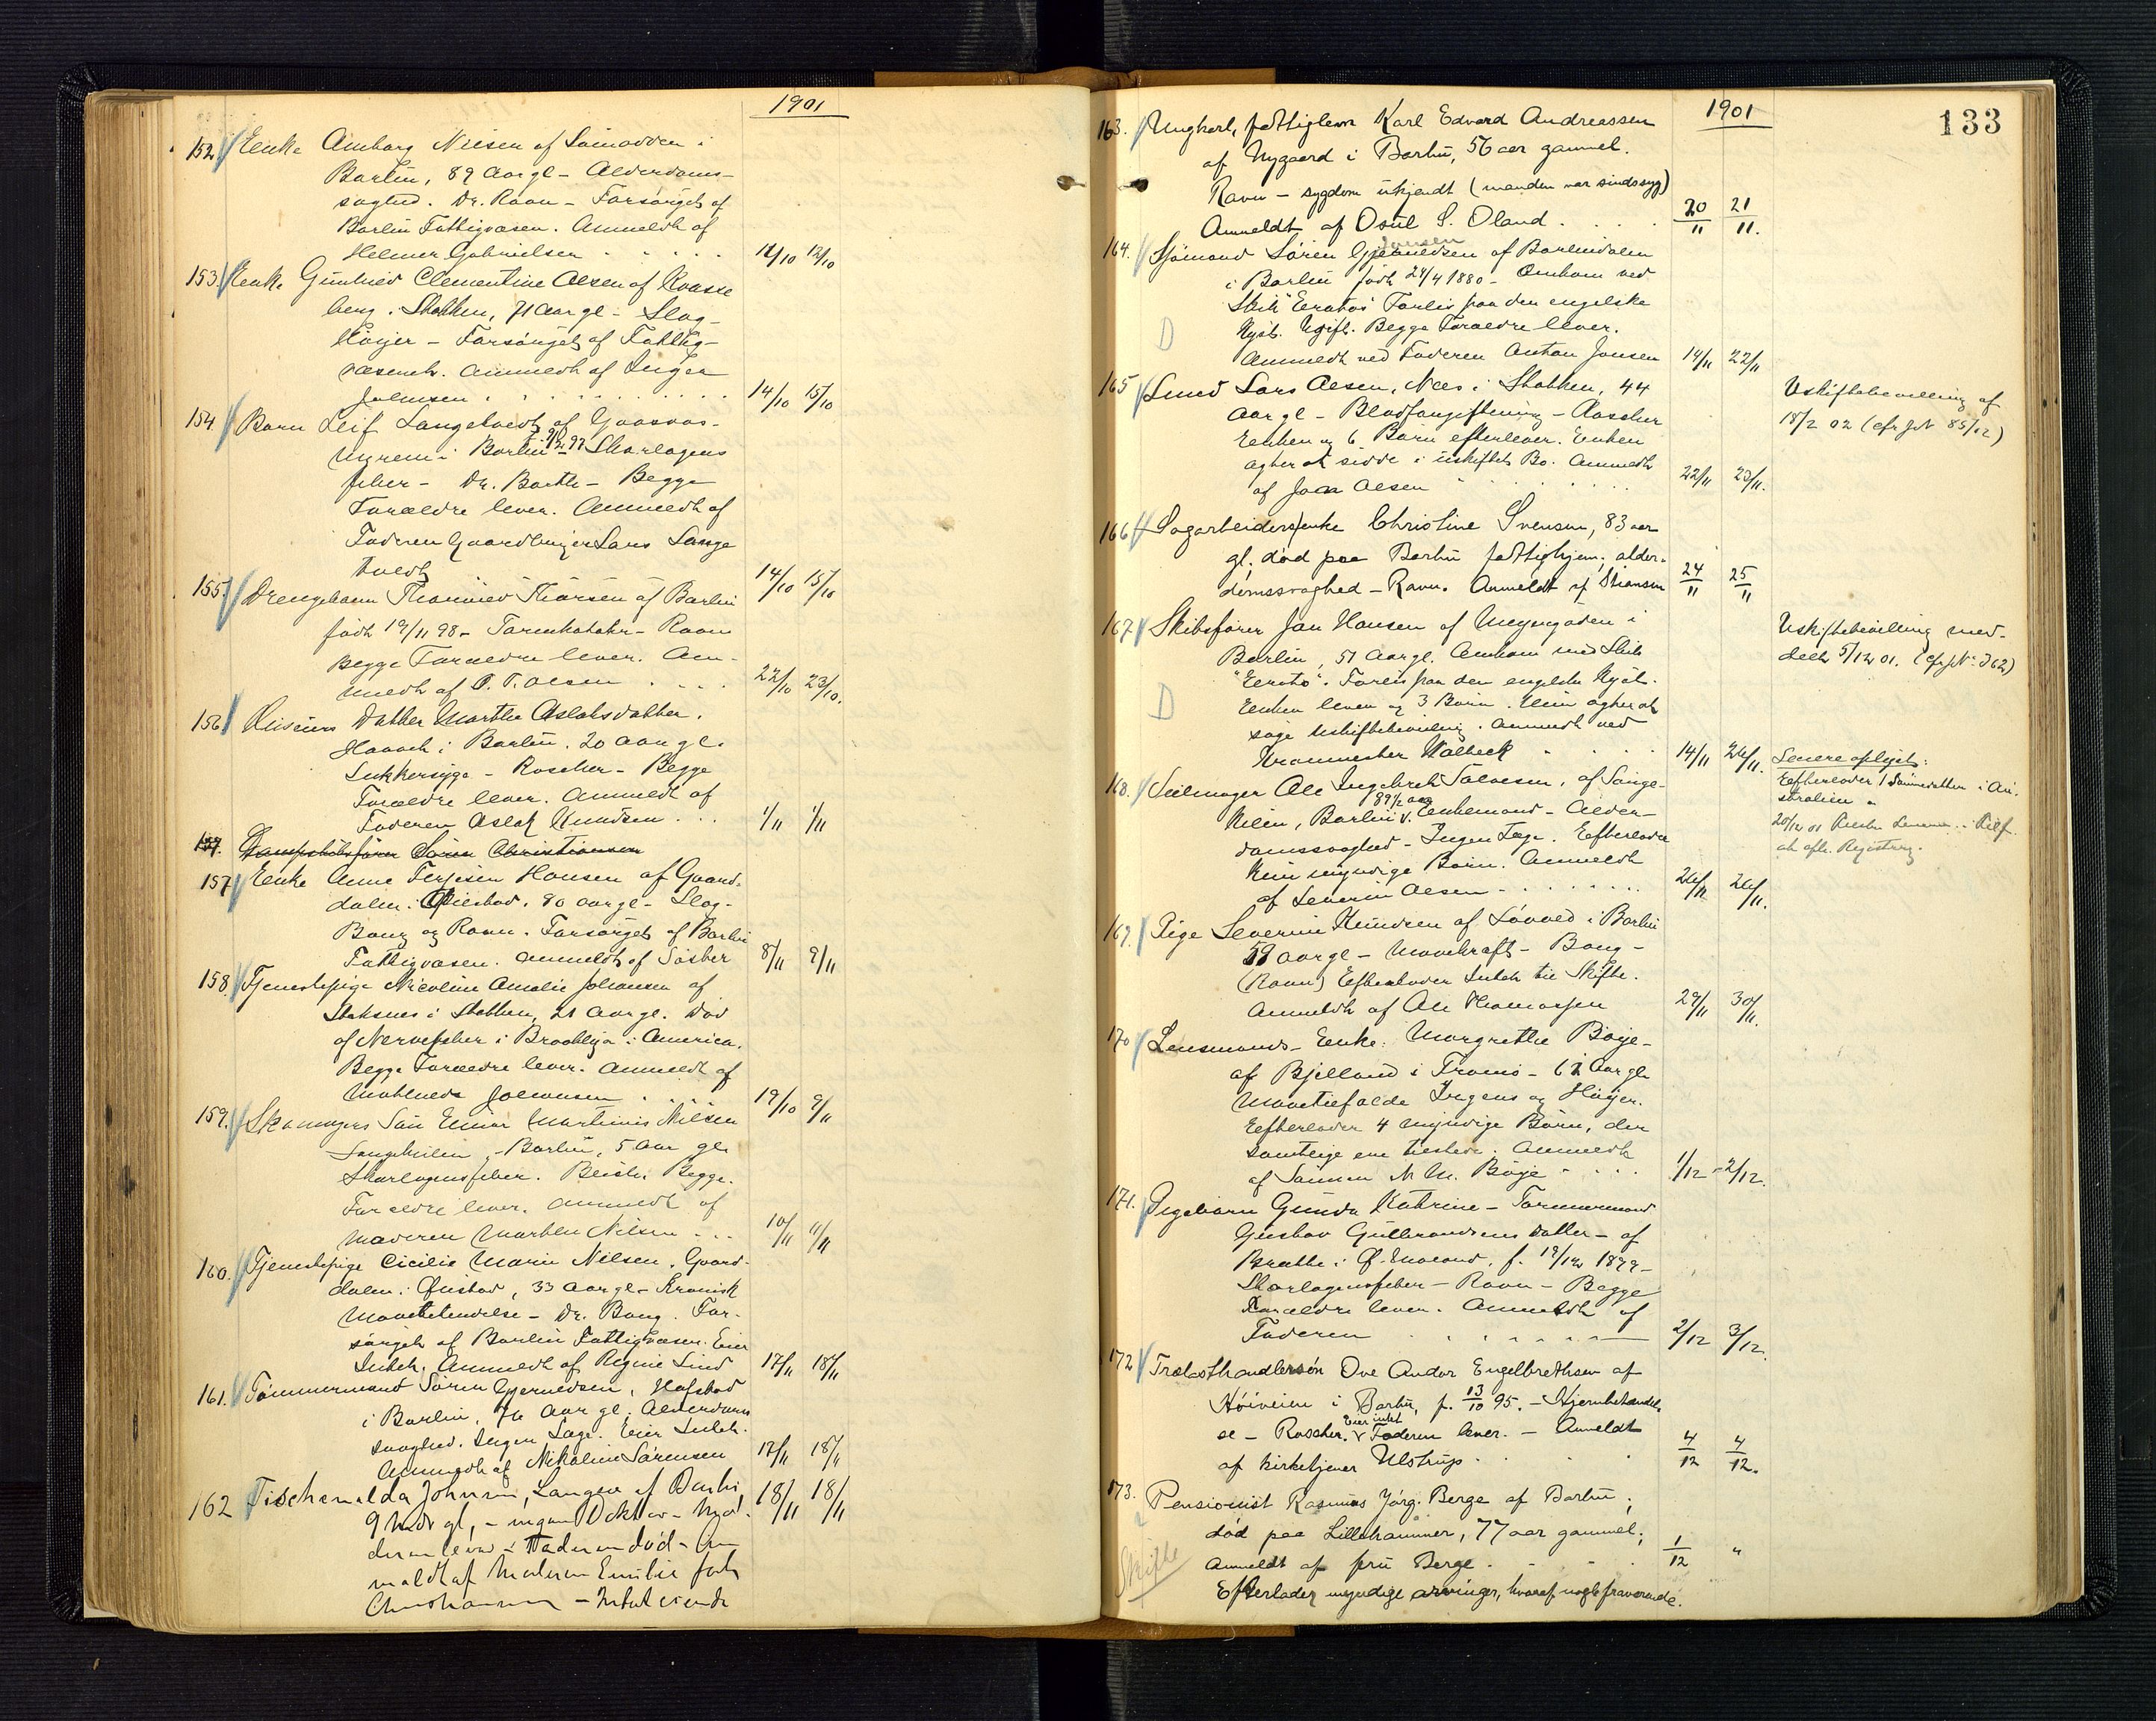 1901
152 Enke Amborg Nilsen af Samodden i
Barbu, 89 aar gl - Alderdoms-
svaghed. Dr. Ravn - Forsørget af
Barbu Fattigvæsen. Anmeldt af
Helmer Gabrielsen . . . . . 11/10 12/10
153 Enke Gunhild Clementine Olsen af Kvasse
berg. Stokken, 71 aar gl - Slag-
Høyer - Forsørget af Fattig-
væsenet. Anmeldt af Inger
Johnsen . . . . . . . 14/10 15/10
154 Barn Leif Langetvedt af Gaasaas-
myren i Barbu 9/12 97 Skarlagens
feber - Dr. Barth - Begge
Forældre lever. Anmeldt af
Faderen Gaardbruger Lars Lange
tvedt 14/10 15/10
155. Drengebarn Thorvald Thorsen af Barbu
født 19/11 98 - Tarmkatahr - Ravn
Begge Forældre lever. An-
meldt af P. T. Olsen . . . 22/10 23/10.
156 Datter Marthe Aslaksdatter.
i Barbu. 20 aar gl.
Sukkersyge - Roscher - Begge
Forældre lever. Anmeldt af
Faderen Aslak Knudsen . . . 1/11 1/11
157. Dampskibsfører Søren Christiansen
157 Enke Anne Terjesen Hansen af Gaard-
dalen i Øiestad. 80 aar gl - Slag-
Bang og Ravn. Forsørget af Barbu
Fattigvæsen. Anmeldt af Søster 8/11 9/11
158. Tjenestepige Nicoline Amalie Johansen af
Staksnes i Stokken, 21 aar gl. Død
af Nervefeber i Brooklyn i America.
Begge Forældre lever. Anmeldt af
Mathilde Johansen . . . . 19/10 9/11
159. Skomagers Søn Einar Martinius Nilsen
Langekilen - Barbu, 5 aar gl
Skarlagensfeber. Begge
Forældre lever. Anmeldt af
Moderen Marthe Nilsen . . . 10/11 11/11
160. Tjenestepige Cicilie Marie Nilsen, Gaard-
dalen i Øiestad, 33 aar gl - Kronisk
Mavebetændelse - Dr. Bang. For-
sørget af Barbu Fattigvæsen. Eier
Intet. Anmeldt af Regine Lind 17/11 18/11
161. Tømmermand Søren Gjermedsen, Hafstad
i Barbu, 76 aar gl. Alderdoms
svaghed. Ingen Læge. Eier Intet.
Anmeldt af Nikoline Sørensen 17/11 18/11
162 Johnsen, Langsæ af Barbu, 18/11 18/11
9 Mdr gl, - ingen Doktor - Mo-
deren lever - Faderen død - An
meldt af Moderen Emilie født
Christiansen - Intet eiende
1901
133
163. Ungkarl, fattiglem Karl Edvard Andreassen
af Nygaard i Barbu, 56 aar gammel.
Ravn - sygdom ukjendt (manden var sindssyg)
Anmeldt af Osul S. Oland . . . . 20/11 21/11.
164. Sjømand Søren Gjermedsen Jansen af Barbudalen
i Barbu født 24/4 1880 - Omkom ved
Skib "Erato's" Forlis paa den engelske
Kyst. Ugift. Begge Forældre lever.
D
Anmeldt ved Faderen Anton Jansen 14/11 22/11
165 Smed Lars Olsen, Næs i Stokken, 44
aar gl - Blodforgiftning - Roscher
Enken og 6 Børn efterlever. Enken
agter at sidde i uskiftet Bo. Anmeldt
af Joa Olsen . . . . . 22/11 23/11.
Uskiftebevilling af
18/2 02 (cfr JN 85/02)
166 Sagarbeidersenke Christine Svensen, 83 aar
gl. død paa Barbu fattighjem; alder-
domssvaghed - Ravn. Anmeldt af Stiansen 24/11 25/11
167 Skibsfører Jan Hansen af i
Barbu, 51 aar gl. Omkom med Skib
"Erato". Forlis paa den engelske Kyst.
Enken lever og 3 Børn. Hun agter at
D
søge Uskiftebevilling. Anmeldt ved
Kranmester Walbeck . . . . 14/11 26/11.
Uskiftebevilling med-
delt 5/12 01. (cfr JN: 362)
168. Seilmager Ole Ingebret Salvesen, af Lange-
kilen, Barbu 89 1/2 aar Enkemand - Alder-
domssvaghed - Ingen Læge. Efterlader
kun myndige Børn. Anmeldt
af Severin Olsen . . . . . . . 26/11 26/11.
Senere oplyst:
Efterlader 1 Sønnedatter i Au-
stralien.
169. Pige Severine Knudsen af Løvved i Barbu
59 aar gl - Mavekræft - Bang -
(Ravn) Efterlader Intet til Skifte.
Anmeldt af Ole Thomassen 29/11 30/11.
170 Lensmands-Enke: Margrethe Bøye -
af Bjelland i Tromø - 62 aar gl
Mavetilfælde Irgens og Høyer.
Efterlader 4 myndige Børn, der
samtlige ere tilstede. Anmeldt
af Sønnen N. M. Bøye . . . . 1/12 - 2/12.
171. Pigebarn Gunda Katrine - Tømmermand
Gustav Gulbrandsens Datter - af
Bratte i Ø. Moland, f. 19/12 1899 -
Skarlagensfeber - Ravn - Begge
Forældre lever. Anmeldt af
Faderen . . . . . . 2/12 3/12.
172 Trælasthandlersøn Ove Andor Engelbrethsen af
Høiveien i Barbu, f. 13/10 95. - Hjernebetændel-
se - Roscher. Eier intet Faderen lever. - Anmeldt
af kirketjener Ulstrup . . . 4/12 4/12.
173. Pensionist Rasmus Jørg. Berge af Barbu;
død paa Lillehammer, 77 aar gammel;
Anmeldt af fru Berge . . . . 1/12 "
Skifte
Efterlader myndige arvinger, hvoraf nogle fraværende.